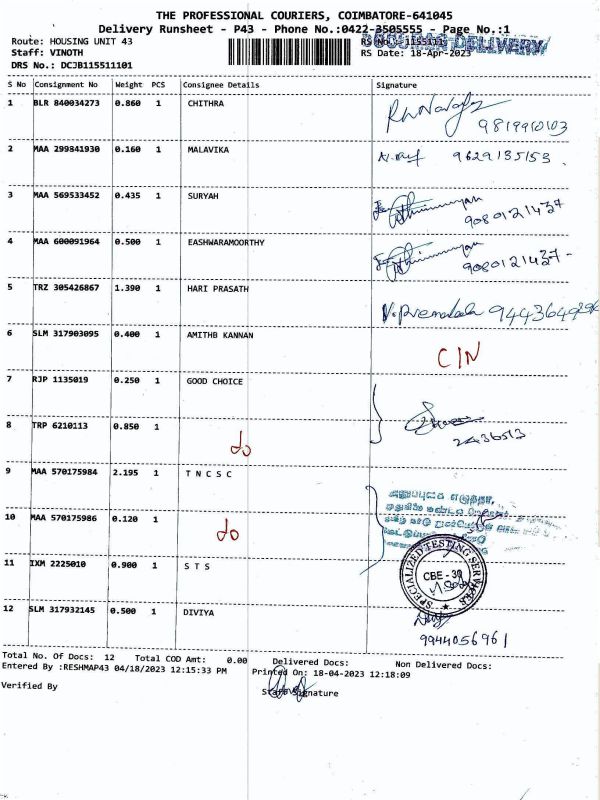 THE PROFESSIONAL COURIERS, COIMBATORE-641045
Delivery Runsheet - P43 - Phone No.:0422-3505555 - Page No.:1
Route: HOUSING UNIT 43
Staff: VINOTH RS Date: 18-Apr-2023
DRS No.: DCJB115511101
S No Consignment No Weight PCS Consignee Details Signature
1 BLR 840034273 0.860 1 CHITHRA
9819910103
2 MAA 299841930 0.160 1 MALAVIKA 9629135153
3 MAA 569533452 0.435 1 SURYAH
9080121437
4 MAA 600091964 0.500 1 EASHWARAMOORTHY
9080121437-
5 TRZ 305426867 1.390 1 HARI PRASATH
6 SLM 317903095 0.400 1 AMITHB KANNAN
CIN
7 RJP 1135019 0.250 1 GOOD CHOICE
8 TRP 6210113 0.850 1
do 2436513
9 MAA 570175984 2.195 1 T N C S C
10 MAA 570175986 0.120 1
do
11 IXM 2225010 0.900 1 S T S
SPECIALIZED TESTING SERVICES
CBE - 30
12 SLM 317932145 0.500 1 DIVIYA
9944056961
Total No. Of Docs: 12 Total COD Amt: 0.00 Delivered Docs: Non Delivered Docs:
Entered By :RESHMAP43 04/18/2023 12:15:33 PM Printed On: 18-04-2023 12:18:09
Verified By Staff Signature